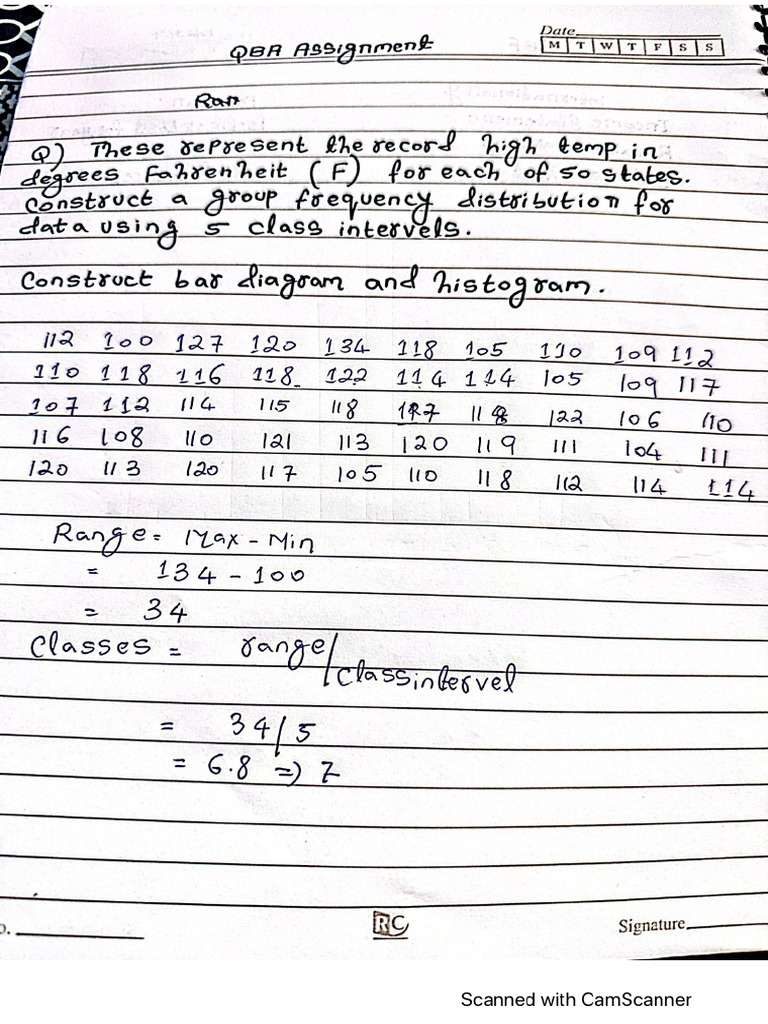 Date
QBA Assignment
M T W T F S S
Q) These represent the record high temp in
degrees Fahrenheit (F) for each of 50 states.
Construct a group frequency distribution for
data using 5 class intervels.
Construct bar diagram and histogram.
112 100 127 120 134 118 105 110 109 112
110 118 116 118 122 114 114 105 109 117
107 112 114 115 118 118 122 106 110
116 108 110 121 113 120 119 111 104 111
120 113 120 117 105 110 118 112 114 114
Range = Max - Min
= 134 - 100
= 34
Classes = range/classintervel
= 34/5
= 6.8 => 7
RC
Signature
Scanned with CamScanner